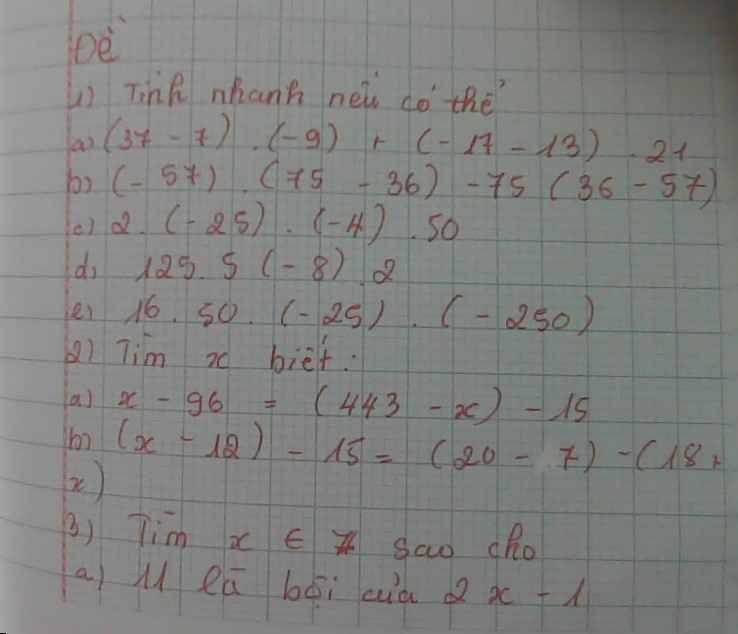 Đề
1) Tính nhanh nếu có thể
a) (37 - 7) . (-9) + (-17 - 13) . 21
b) (- 57) . (75 - 36) - 75 (36 - 57)
c) 2 . (- 25) . (-4) . 50
d) 125. 5 (- 8) . 2
e) 16 . 50 . (- 25) . (- 250)
2) Tìm x biết:
a) x - 96 = (443 - x) - 15
b) (x - 12) - 15 = (20 - 7) - (18 +
x)
3) Tìm x ∈ Z sao cho
a) 11 là bội của 2 x - 1